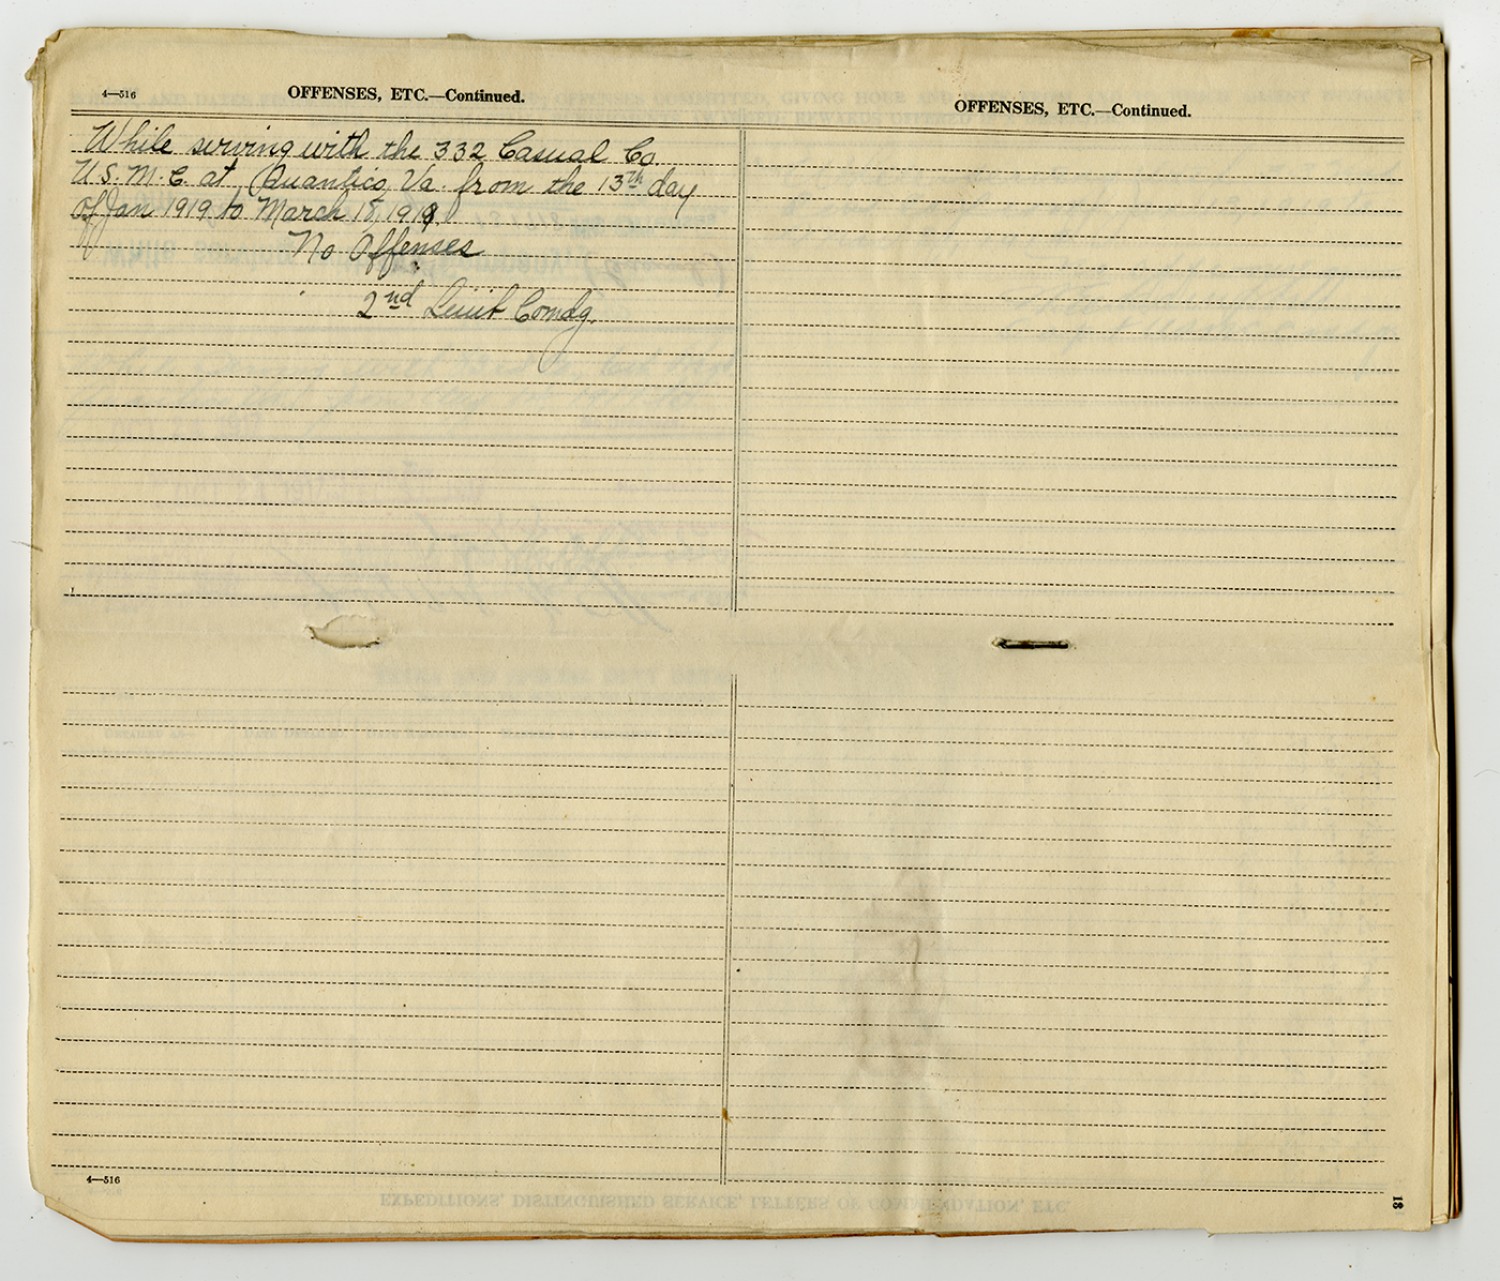 4—516
OFFENSES, ETC.—Continued.
While serving with the 332 Casual Co.
U.S.M.C. at Quantico, Va. from the 13th day
of Jan 1919 to March 18, 1919.
No Offenses
2nd Lieut Comdg.
4—516
OFFENSES, ETC.—Continued.
18
EXPEDITIONS, DISTINGUISHED SERVICE, LETTERS OF COMMENDATION, ETC.